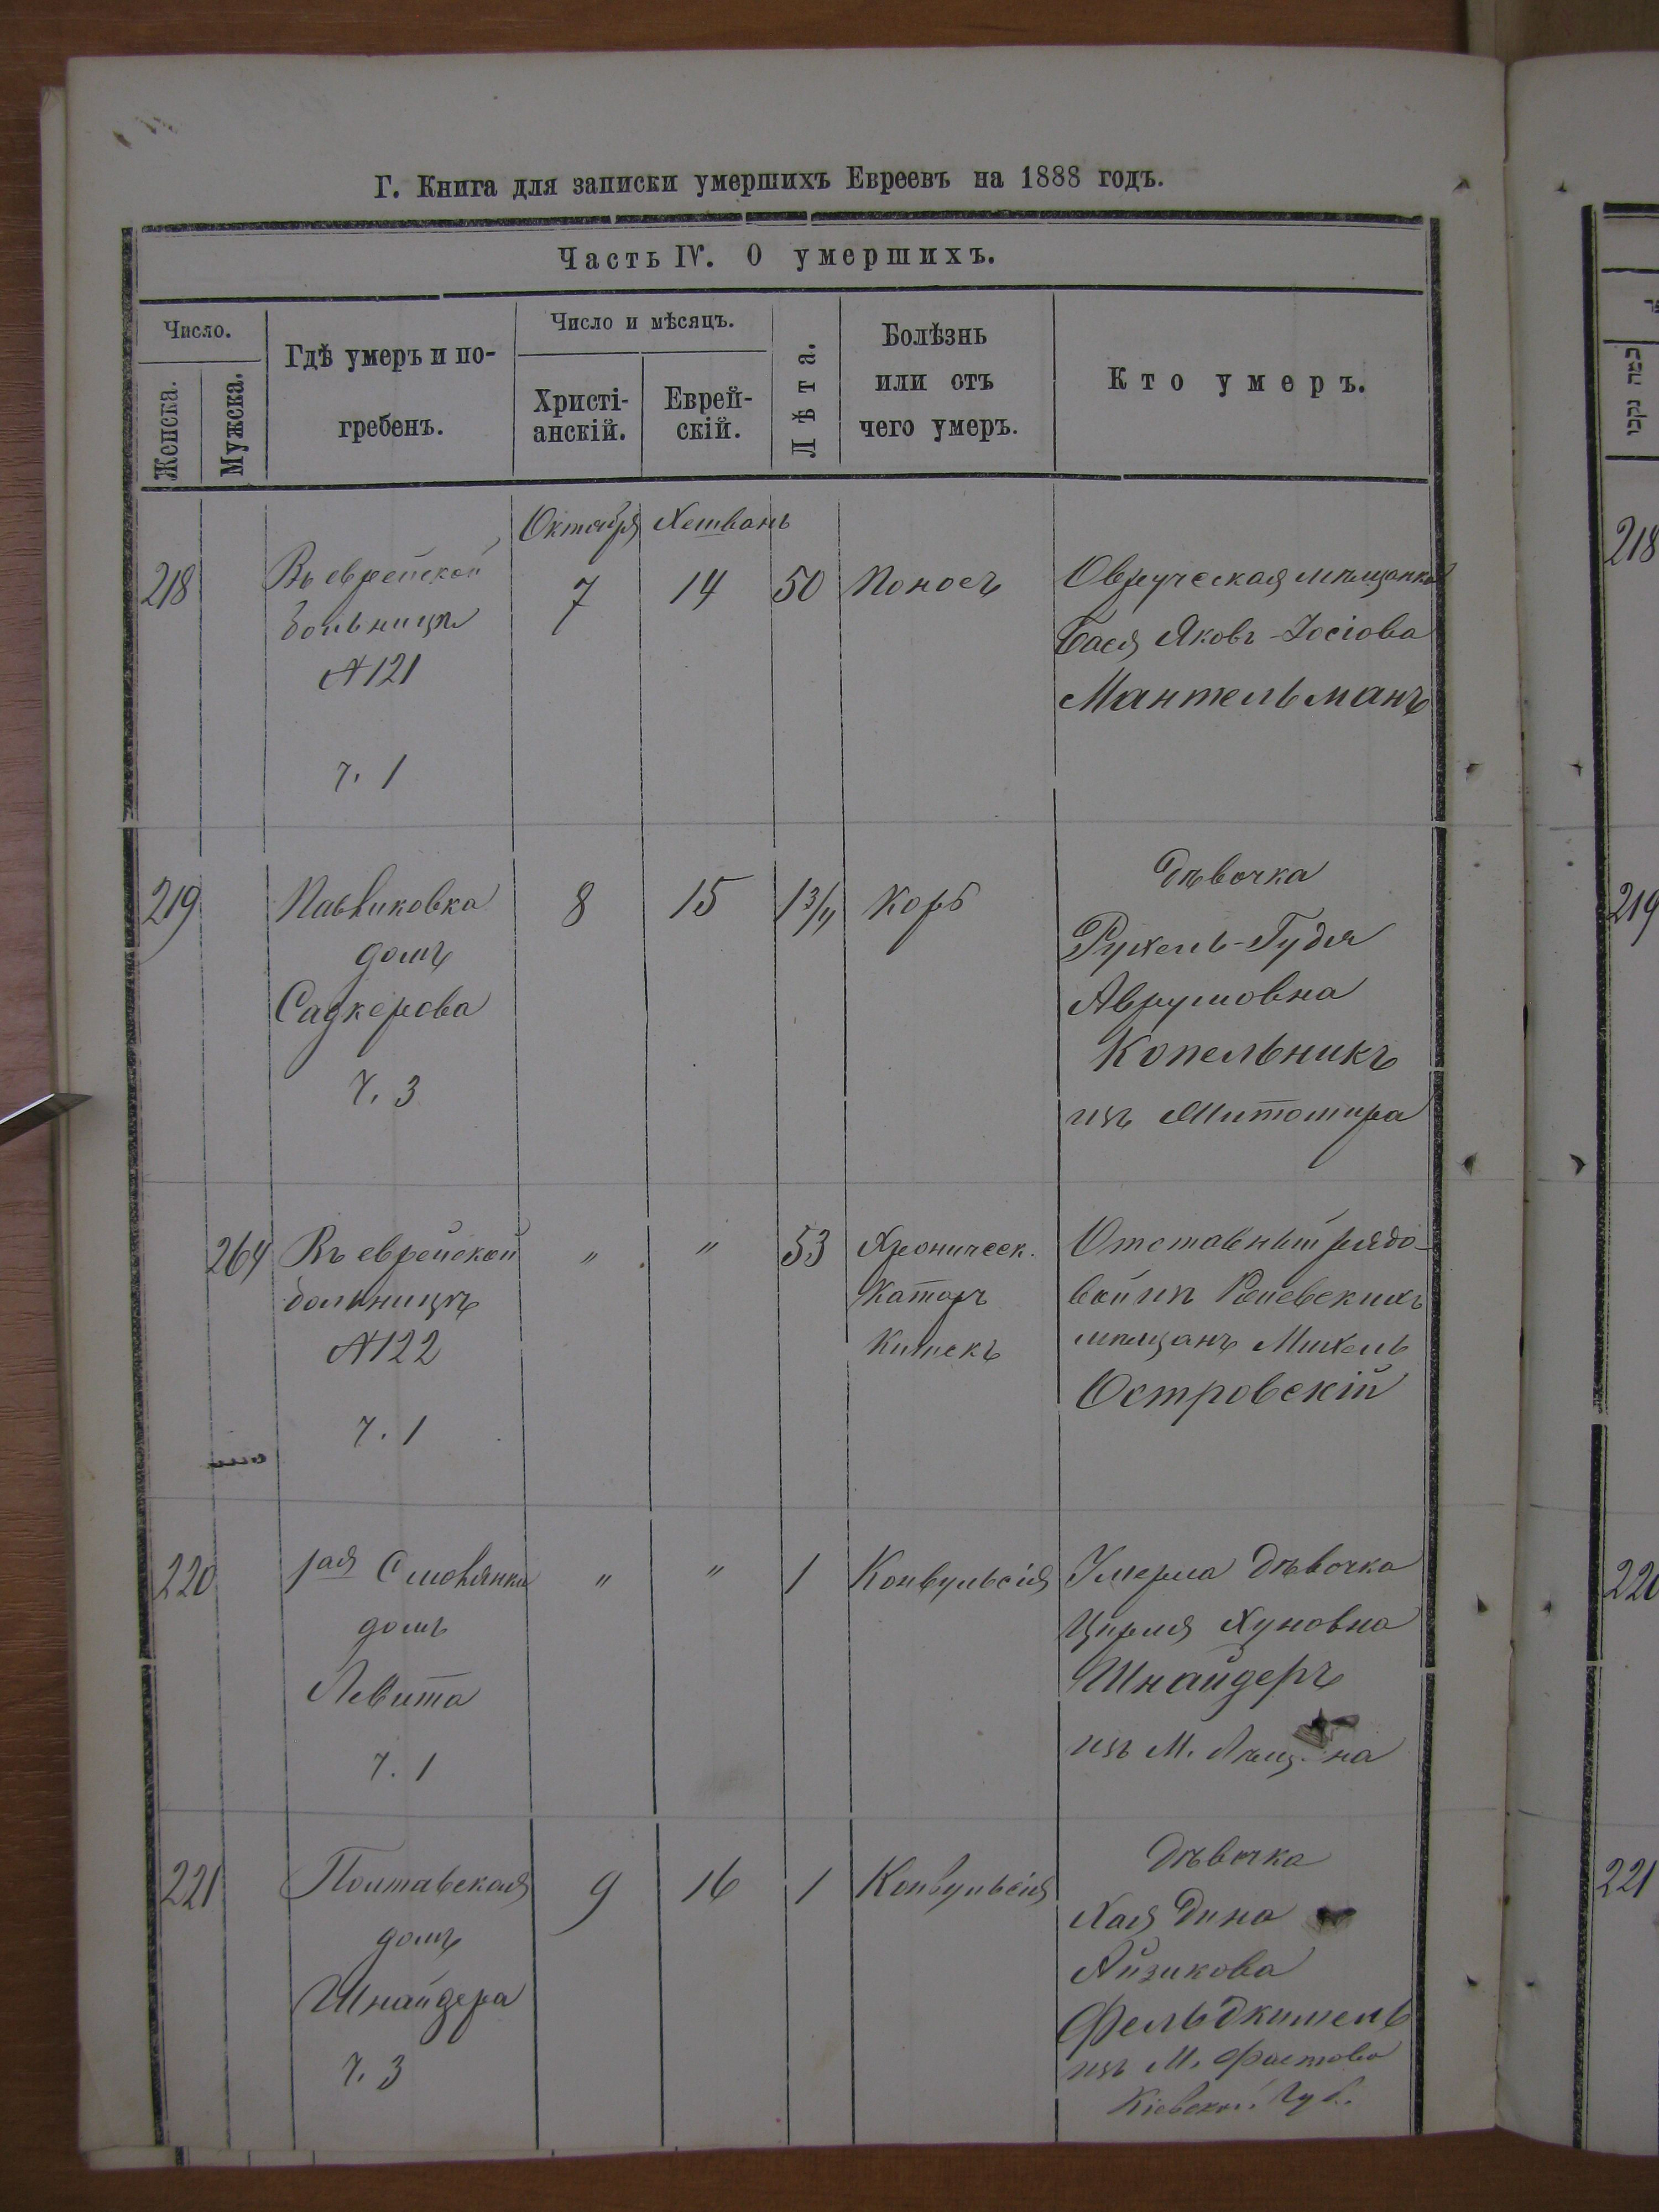 Г. Книга для записки умершихъ Евреевъ на 1888 годъ.
Часть IV. О умершихъ.
Число.
Женска.
Мужска.
Гдѣ умеръ и по-
гребенъ.
Число и мѣсяцъ.
Христі-
анскій.
Еврей-
скій.
Лѣта.
Болѣзнь
или отъ
чего умеръ.
Кто умеръ.
Октября Хешванъ
218
Въ еврейской
больницѣ
№121
ч. 1
7
14
50
Поносъ
Овручская мѣщанка
Бася Яковъ-Іосіова
Мантельманъ
219
Павликовка
домъ
Садкерова
ч. 3
8
15
1 3/4
Корь
Дѣвочка
Рухель-Гудля
Аврумовна
Копельникъ
изъ Житомира
264
Въ еврейской
больницѣ
№122
ч. 1
"
"
53
Хроническ.
Катаръ
Кишекъ
Отставный рядо-
вой изъ
мѣщанъ Михель
Островскій
220
1ая Смолянка
домъ
Левита
ч. 1
"
"
1
Конвульсія
Умерла Дѣвочка
Цирля Хуновна
Шнайдеръ
изъ М.
221
Полтавская
домъ
Шнайдера
ч. 3
9
16
1
Конвульсія
Дѣвочка
Хая Дина
Айзикова
Фельдкишель
изъ М. Фастова
Кіевской Губ.
218
219
220
221